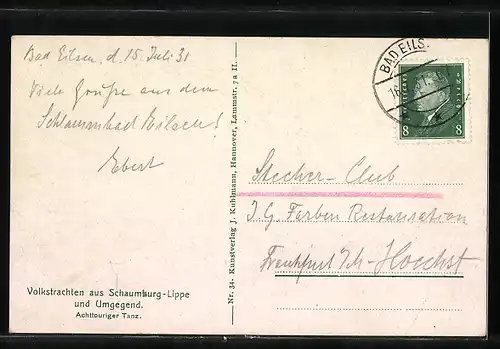 Bad Eilsen, d. 15. Juli 31
Viele Grüße aus dem
Schlammbad Eilsen!
Ebert
Volkstrachten aus Schaumburg-Lippe
und Umgegend.
Achttouriger Tanz.
Nr. 34. Kunstverlag J. Kuhlmann, Hannover, Lammstr. 7a II.
BAD EILS.
8 8
Stecher-Club
I. G. Farben Restauration
Frankfurt -Hoechst